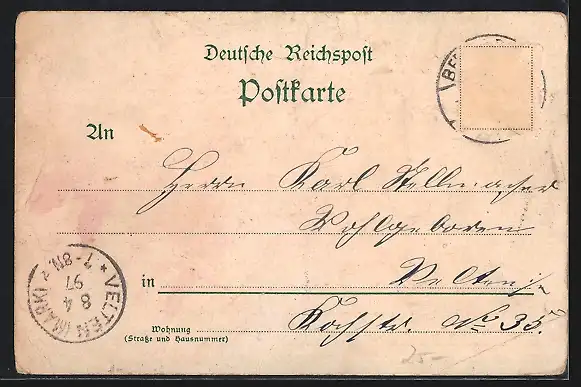 Deutsche Reichspost
Postkarte
BE
An
Herrn Karl Stellmacher
Wohlgeboren
in Velten
Wohnung
(Straße und Hausnummer)
Kochstr. No 35.
VELTEN (MARK)
8 4
97
7-8N.
25-